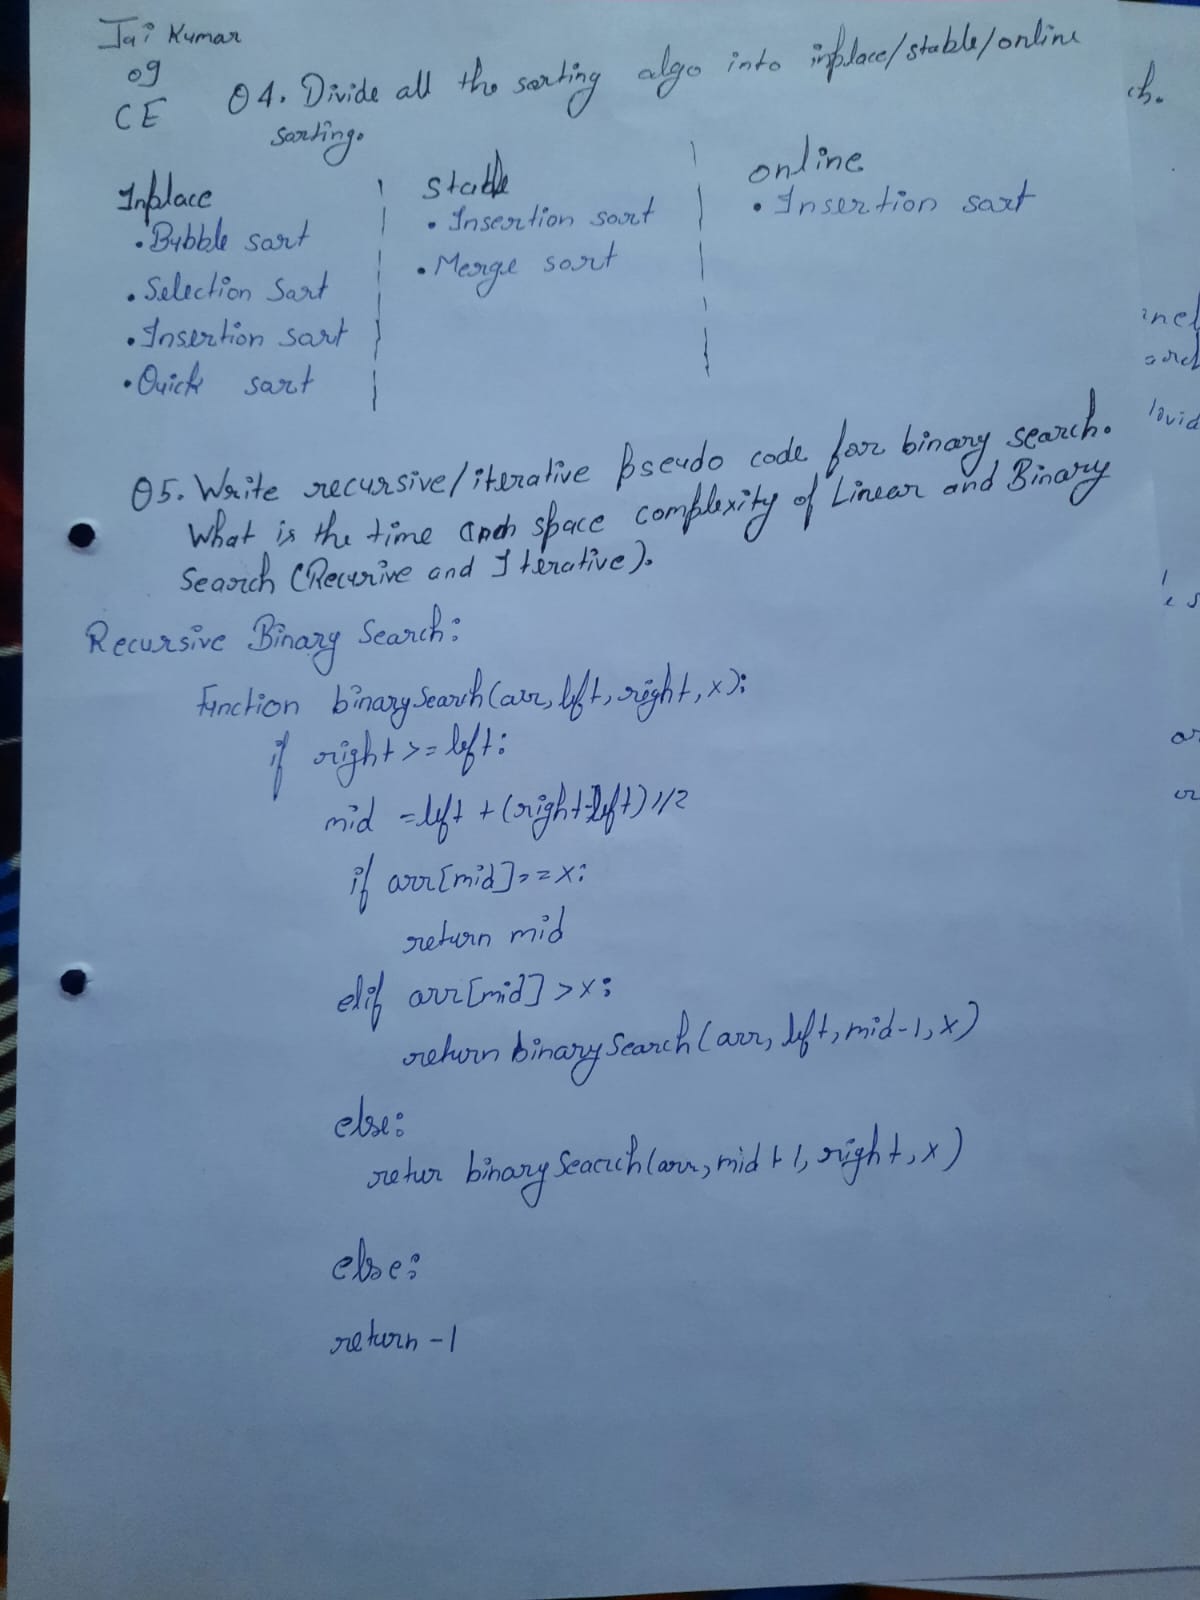 Jai Kumar
09
CE
Q4. Divide all the sorting algo into inplace/stable/online
sorting.
Inplace
• Bubble sort
• Selection Sort
• Insertion sort
• Quick sort
Stable
• Insertion sort
• Merge sort
online
• Insertion sort
Q5. Write recursive/iterative pseudo code for binary search.
What is the time and space complexity of Linear and Binary
Search (Recurive and Iterative).
Recursive Binary Search:
Function binarySearch(arr, left, right, x):
if right >= left:
mid = left + (right-left)//2
if arr[mid] == x:
return mid
elif arr[mid] > x:
return binarySearch(arr, left, mid-1, x)
else:
retur binarySearch(arr, mid + 1, right, x)
else:
return -1
ch.